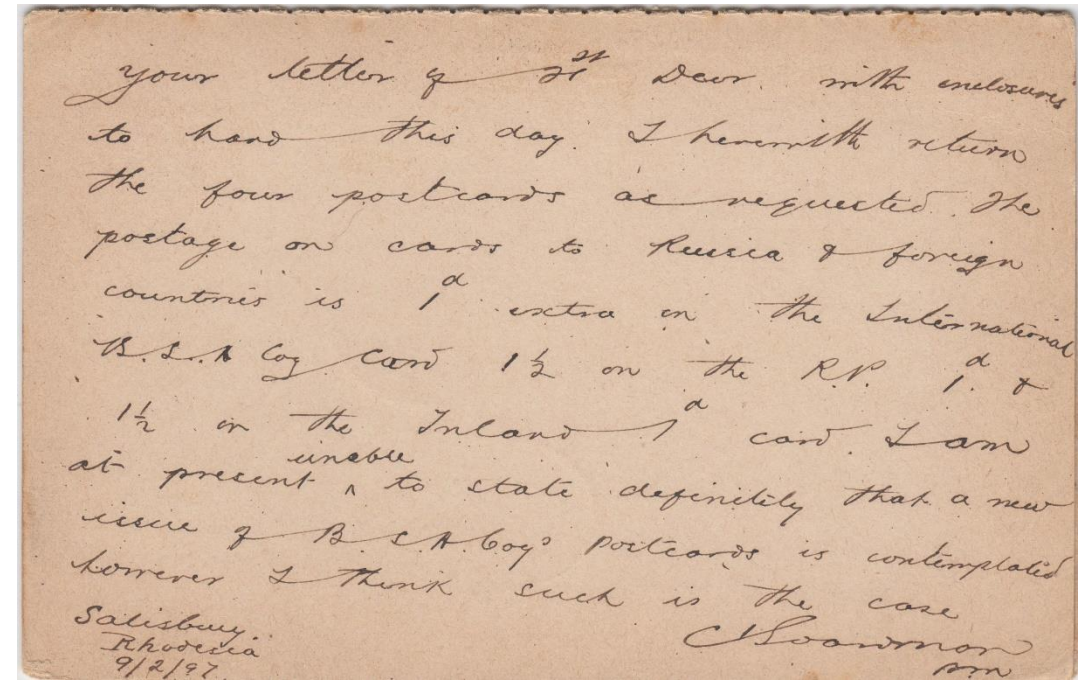 Your letter of 21st Decr. with enclosures
to hand this day. I herewith return
the four postcards as requested. The
postage on cards to Russia & foreign
countries is 1d extra on the International
B.S.A Coy Card 1½ on the R.P. 1d. &
1½ on the Inland 1d card. I am
at present unable to state definitely that a new
issue of B.S.A. Coys Postcards is contemplated
however I think such is the case
Salisbury.
Rhodesia
9/2/97